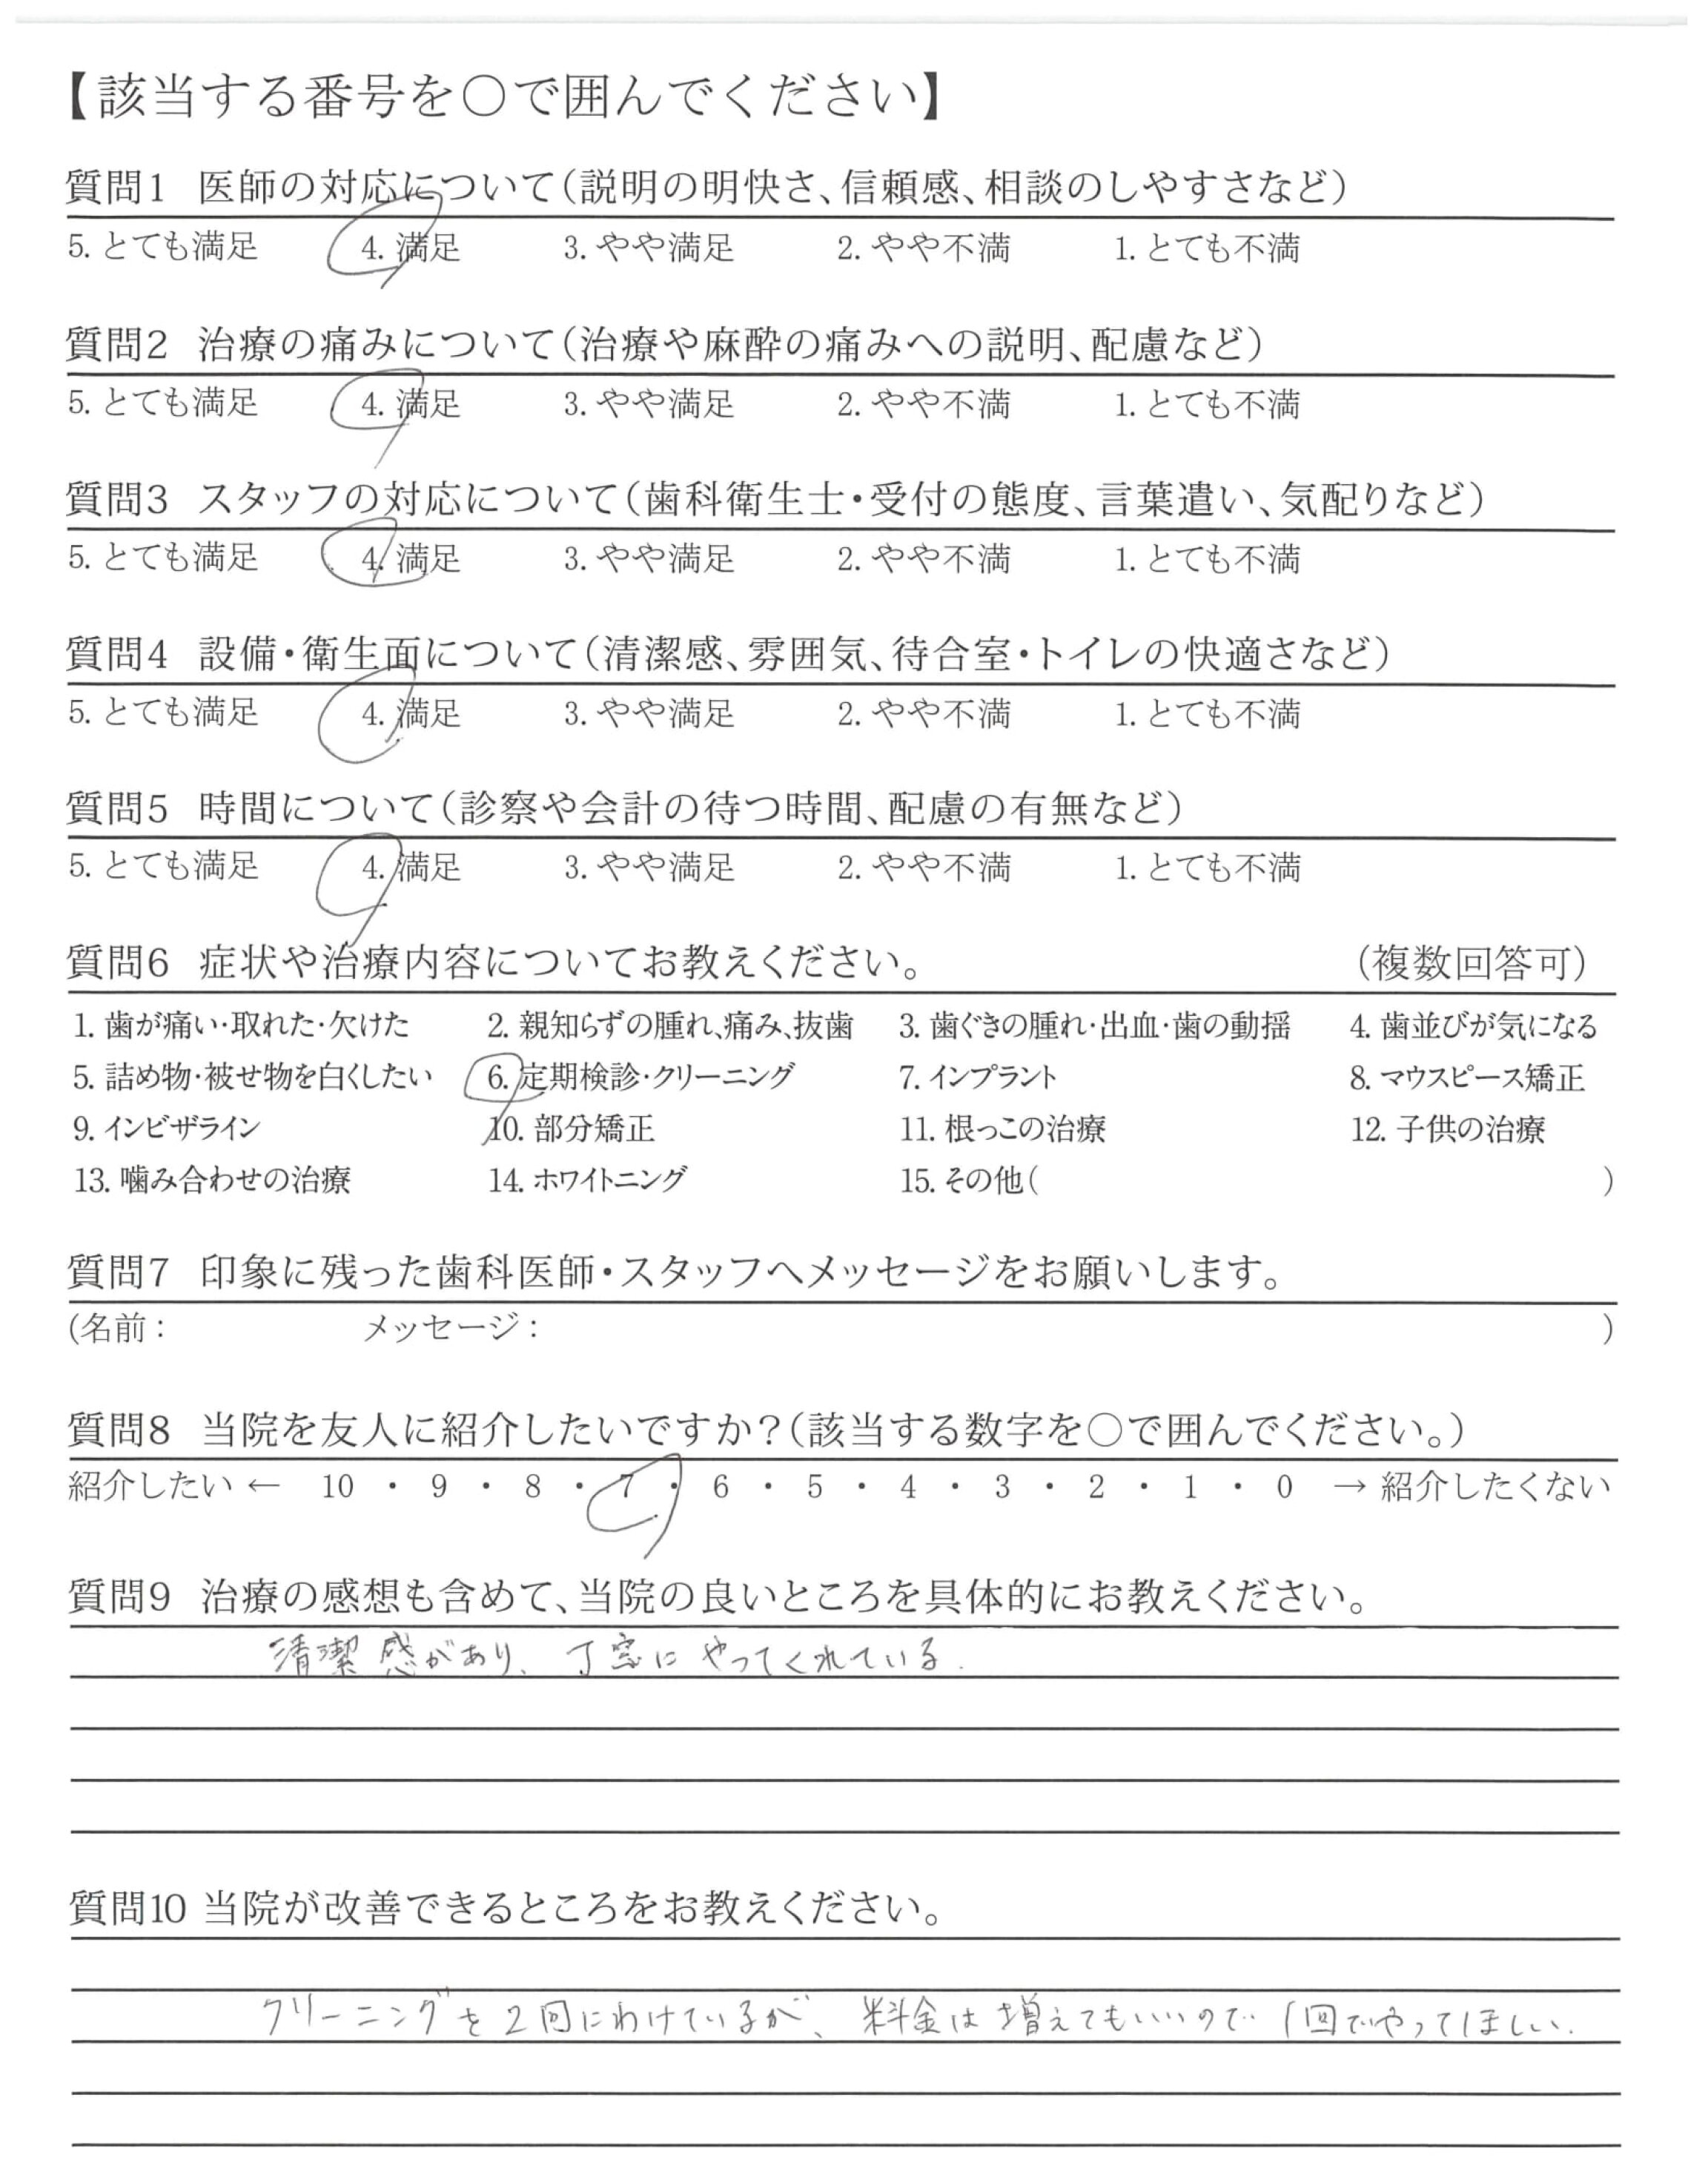 【該当する番号を〇で囲んでください】
質問1 医師の対応について(説明の明快さ、信頼感、相談のしやすさなど)
5. とても満足 4. 満足 3. やや満足 2. やや不満 1. とても不満
質問2 治療の痛みについて(治療や麻酔の痛みへの説明、配慮など)
5. とても満足 4. 満足 3. やや満足 2. やや不満 1. とても不満
質問3 スタッフの対応について(歯科衛生士・受付の態度、言葉遣い、気配りなど)
5. とても満足 4. 満足 3. やや満足 2. やや不満 1. とても不満
質問4 設備・衛生面について(清潔感、雰囲気、待合室・トイレの快適さなど)
5. とても満足 4. 満足 3. やや満足 2. やや不満 1. とても不満
質問5 時間について(診察や会計の待つ時間、配慮の有無など)
5. とても満足 4. 満足 3. やや満足 2. やや不満 1. とても不満
質問6 症状や治療内容についてお教えください。 (複数回答可)
1. 歯が痛い・取れた・欠けた 2. 親知らずの腫れ、痛み、抜歯 3. 歯ぐきの腫れ・出血・歯の動揺 4. 歯並びが気になる
5. 詰め物・被せ物を白くしたい 6. 定期検診・クリーニング 7. インプラント 8. マウスピース矯正
9. インビザライン 10. 部分矯正 11. 根っこの治療 12. 子供の治療
13. 噛み合わせの治療 14. ホワイトニング 15. その他( )
質問7 印象に残った歯科医師・スタッフへメッセージをお願いします。
(名前: メッセージ: )
質問8 当院を友人に紹介したいですか?(該当する数字を〇で囲んでください。)
紹介したい ← 10 ・ 9 ・ 8 ・ 7 ・ 6 ・ 5 ・ 4 ・ 3 ・ 2 ・ 1 ・ 0 → 紹介したくない
質問9 治療の感想も含めて、当院の良いところを具体的にお教えください。
清潔感があり、丁寧にやってくれている.
質問10 当院が改善できるところをお教えください。
クリーニングを2回にわけているが、料金は増えてもいいので1回でやってほしい.